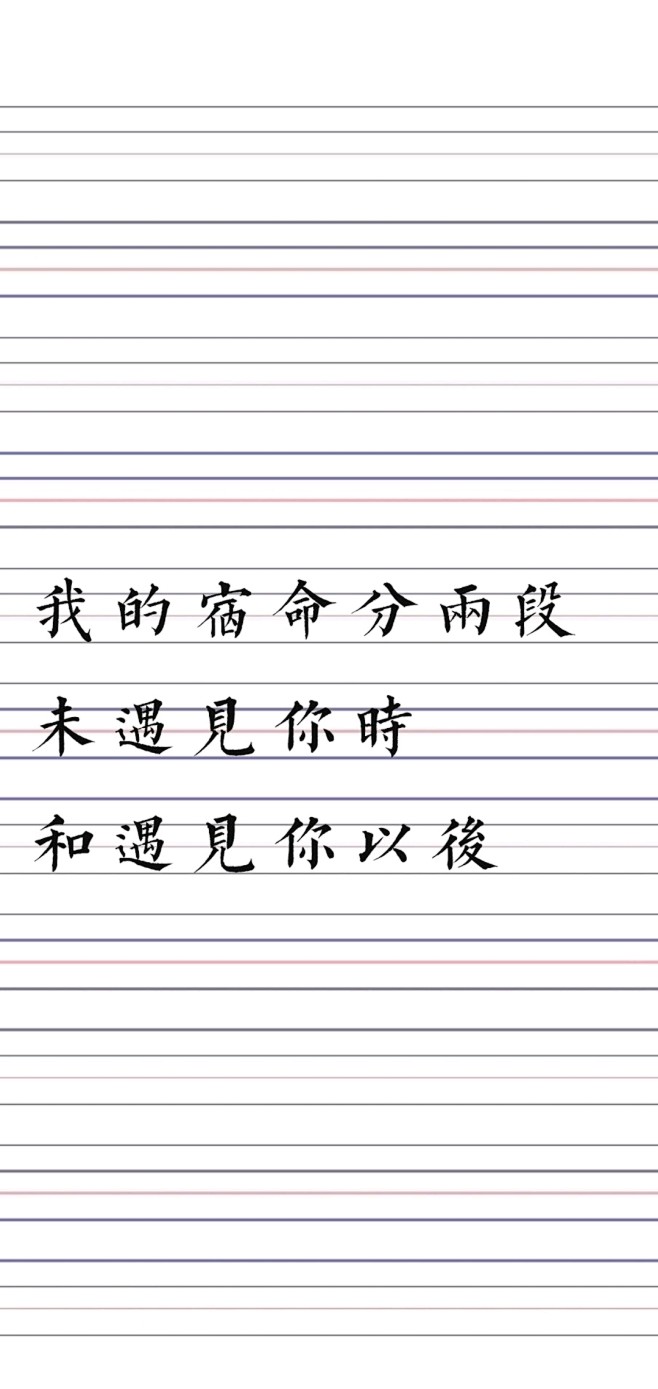 我的宿命分兩段
未遇見你時
和遇見你以後